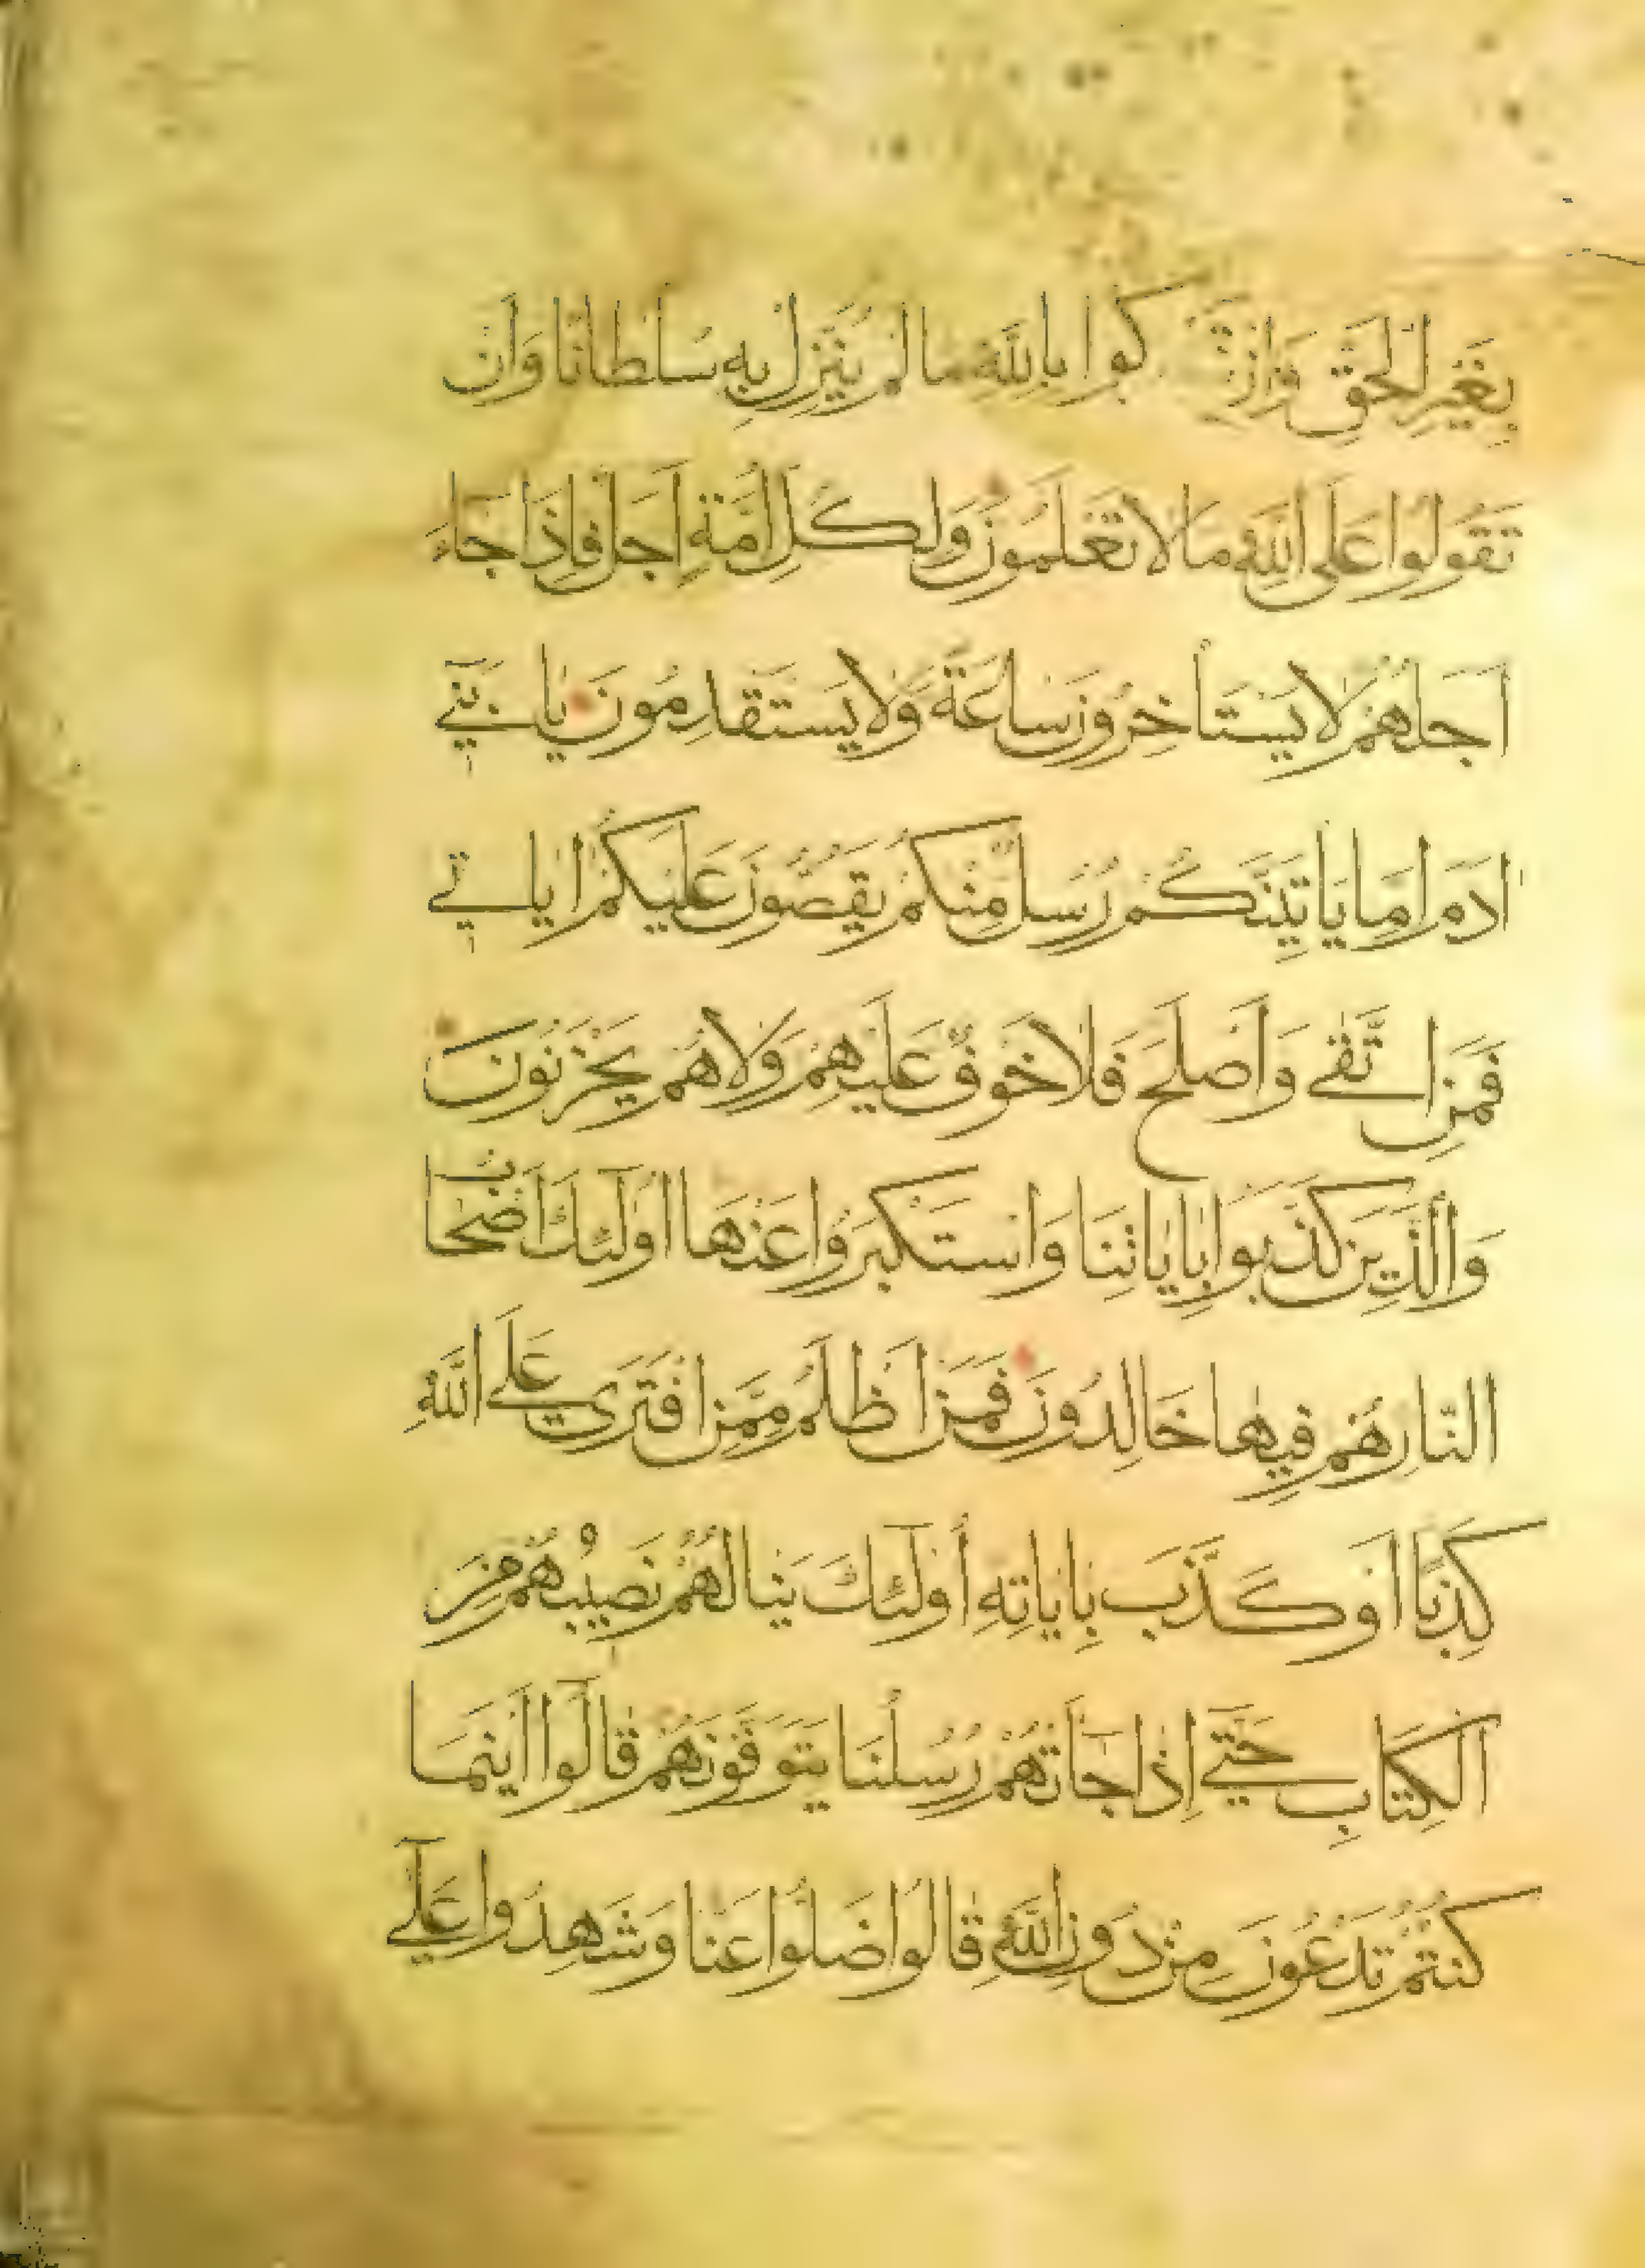 بِغَيْرِ الْحَقِّ وَاَنْ تُشْرِكُوا بِاللّٰهِ مَا لَمْ يُنَزِّلْ بِهِ سُلْطَانًا وَاَنْ
تَقُولُوا عَلَى اللّٰهِ مَا لَا تَعْلَمُونَ وَلِكُلِّ اُمَّةٍ اَجَلٌ فَاِذَا جَاءَ
اَجَلُهُمْ لَا يَسْتَأْخِرُونَ سَاعَةً وَلَا يَسْتَقْدِمُونَ يَا بَنِي
ادَمَ اِمَّا يَاتِيَنَّكُمْ رُسُلٌ مِنْكُمْ يَقُصُّونَ عَلَيْكُمْ ايَاتِي
فَمَنِ اتَّقٰى وَاَصْلَحَ فَلَا خَوْفٌ عَلَيْهِمْ وَلَا هُمْ يَحْزَنُونَ
وَالَّذِينَ كَذَّبُوا بِايَاتِنَا وَاسْتَكْبَرُوا عَنْهَا اُولٰٓئِكَ اَصْحَابُ
النَّارِ هُمْ فِيهَا خَالِدُونَ فَمَنْ اَظْلَمُ مِمَّنِ افْتَرَى عَلَى اللّٰهِ
كَذِبًا اَوْ كَذَّبَ بِايَاتِهِ اُولٰٓئِكَ يَنَالُهُمْ نَصِيبُهُمْ مِنَ
الْكِتَابِ حَتّٰى اِذَا جَاَتْهُمْ رُسُلُنَا يَتَوَفَّوْنَهُمْ قَالُوٓا اَيْنَمَا
كُنْتُمْ تَدْعُونَ مِنْ دُونِ اللّٰهِ قَالُوا ضَلُّوا عَنَّا وَشَهِدُوا عَلٰٓى